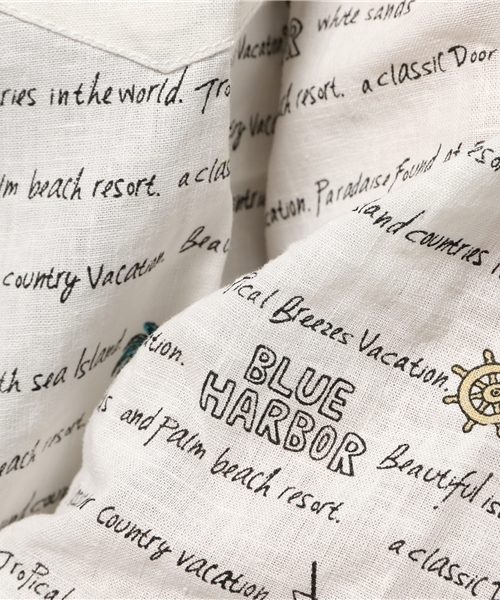 white sands
Vacation
ries in the world. Tro
h resort. a classic Door
ry Vaca
lm beach resort. a clas
cation. Paradaise found at Eso
sland countries i
country Vacation. Beau
pical Breezes Vacation.
th sea Island
ation.
BLUE
HARBOR
and Palm beach resort.
Beautiful is
each resort.
our country vacation
a classic D
Tropical